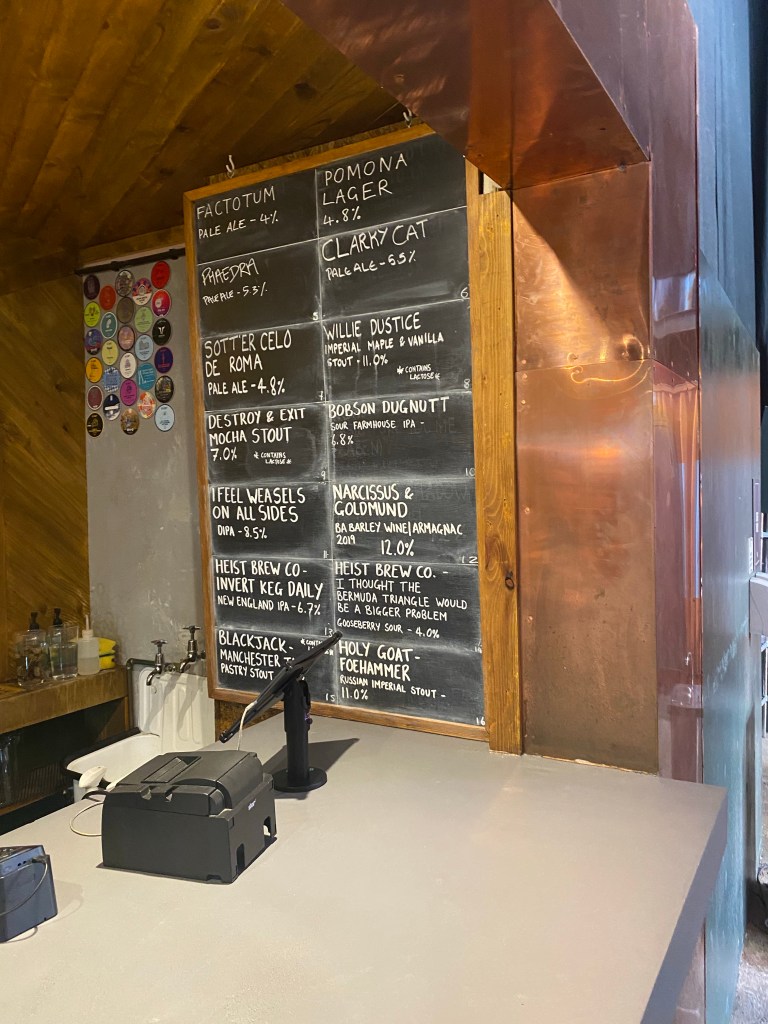 FACTOTUM
PALE ALE - 4%
POMONA
LAGER
4.8%
PHAEDRA
PALE ALE - 5.3%
5
CLARKY CAT
PALE ALE - 5.5%
6
SOTT'ER CELO
DE ROMA
PALE ALE - 4.8%
7
WILLIE DUSTICE
IMPERIAL MAPLE & VANILLA
STOUT - 11.0%
* CONTAINS
LACTOSE *
8
DESTROY & EXIT
MOCHA STOUT
7.0%
* CONTAINS
LACTOSE *
9
BOBSON DUGNUTT
SOUR FARMHOUSE IPA -
6.8%
10
I FEEL WEASELS
ON ALL SIDES
DIPA - 8.5%
11
NARCISSUS &
GOLDMUND
BA BARLEY WINE/ARMAGNAC
2019
12.0%
12
HEIST BREW CO-
INVERT KEG DAILY
NEW ENGLAND IPA - 6.7%
13
HEIST BREW CO. -
I THOUGHT THE
BERMUDA TRIANGLE WOULD
BE A BIGGER PROBLEM
GOOSEBERRY SOUR - 4.0%
14
BLACKJACK-
MANCHESTER
PASTRY STOUT
15
HOLY GOAT-
FOEHAMMER
RUSSIAN IMPERIAL STOUT -
11.0%
16